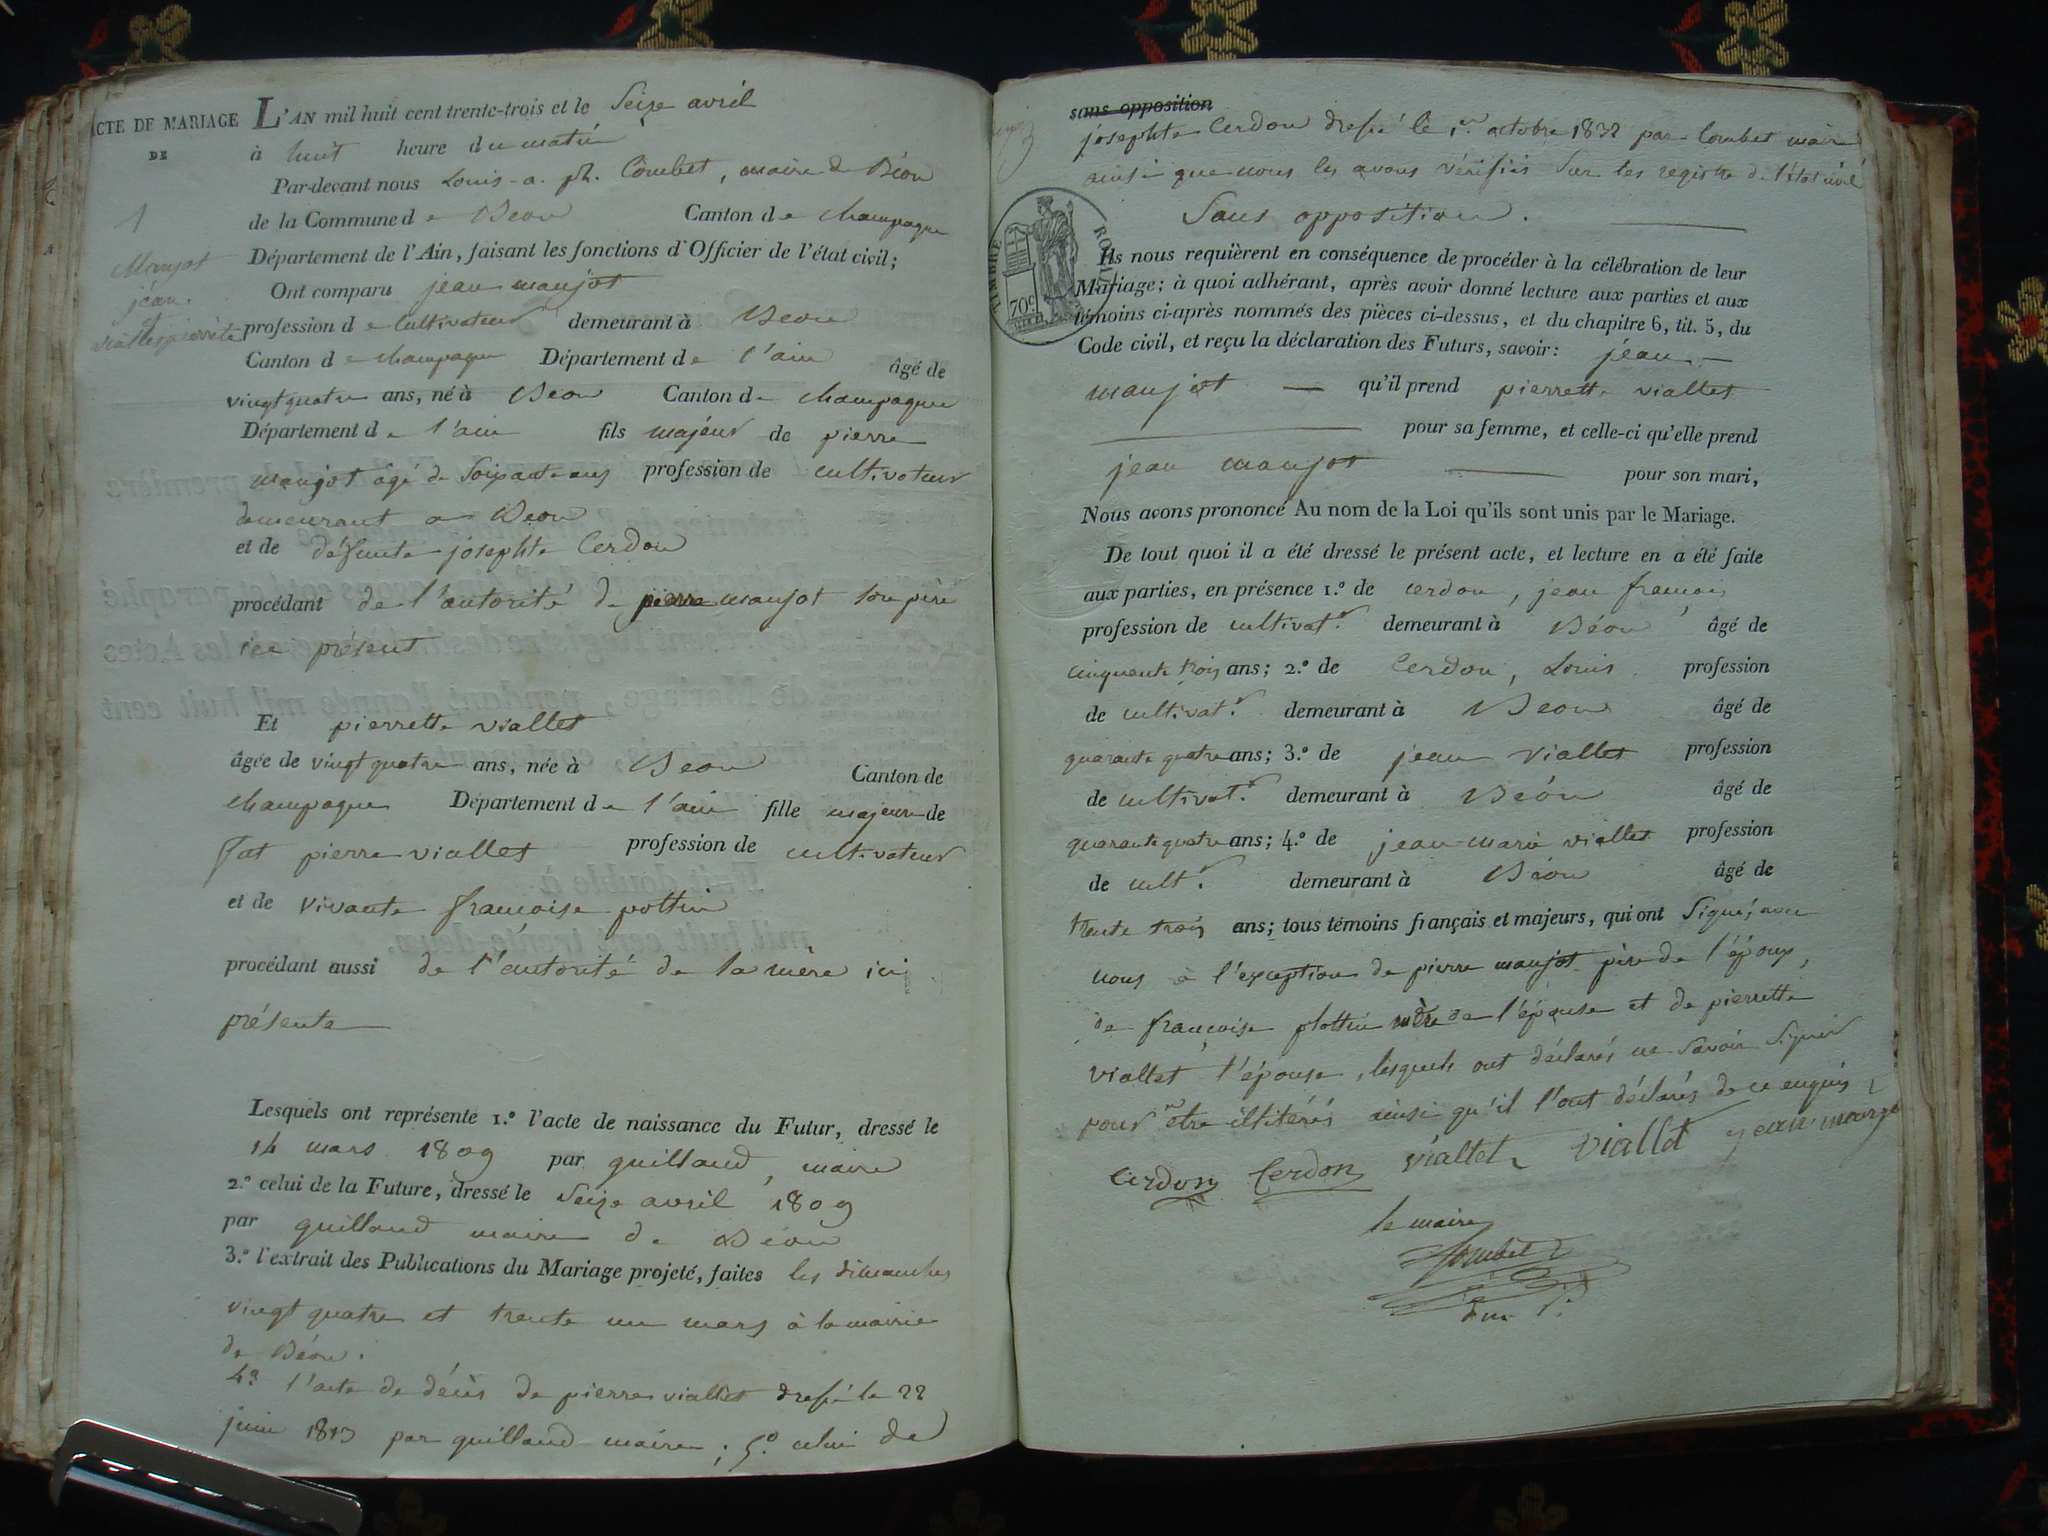 ACTE DE MARIAGE
DE
1
Maujot
jean.
et
viallet pierrette
L'AN mil huit cent trente-trois et le Seize avril
à huit heure du matin
Par-devant nous Louis-a. ph. Combet, maire de Béon
de la Commune de Beon Canton de champagne
Département de l'Ain, faisant les fonctions d'Officier de l'état civil;
Ont comparu jean maujot
profession de Cultivateur demeurant à Beon
Canton de champagne Département de l'ain âgé de
vingt quatre ans, né à Beon Canton de champagne
Département de l'ain fils majeur de pierre
maujot âgé de Soixante ans profession de cultivateur
demeurant a Beon
et de défunte josephte Cerdon
procédant de l'autorité de pierre maujot son père
ici présent
Et pierrette viallet
âgée de vingt quatre ans, née à Beon Canton de
champagne Département de l'ain fille majeure de
fut pierre viallet profession de cultivateur
et de vivante francoise pottin
procédant aussi de l'autorité de la mère ici
présente
Lesquels ont représente 1.º l'acte de naissance du Futur, dressé le
14 mars 1809 par guilland, maire
2.º celui de la Future, dressé le Seize avril 1809
par guilland maire de Béon
3.º l'extrait des Publications du Mariage projeté, faites les dimanches
vingt quatre et trente un mars à la mairie
de Béon.
4º l'acte de décès de pierre viallet dressé le 22
juin 1813 par guilland maire; 5.º celui de
sans opposition
josephte Cerdon dressé le 1er octobre 1832 par Combet maire
ainsi que nous les avons vérifiés Sur les registre de l'état civil
Sans opposition.
TIMBRE ROYAL
70c
Ils nous requièrent en conséquence de procéder à la célébration de leur
Mariage; à quoi adhérant, après avoir donné lecture aux parties et aux
témoins ci-après nommés des pièces ci-dessus, et du chapitre 6, tit. 5, du
Code civil, et reçu la déclaration des Futurs, savoir: jean
maujot qu'il prend pierrette viallet
pour sa femme, et celle-ci qu'elle prend
jean maujot pour son mari,
Nous avons prononcé Au nom de la Loi qu'ils sont unis par le Mariage.
De tout quoi il a été dressé le présent acte, et lecture en a été faite
aux parties, en présence 1.º de cerdon, jean francois
profession de cultivat.r demeurant à Béon âgé de
cinquante trois ans; 2.º de Cerdon, Louis profession
de cultivat.r demeurant à Beon âgé de
quarante quatre ans; 3.º de jean viallet profession
de cultivat.r demeurant à Béon âgé de
quarante quatre ans; 4.º de jean-marie viallet profession
de cult.r demeurant à Béon âgé de
trente trois ans; tous témoins français et majeurs, qui ont Signé, avec
nous à l'exception de pierre maujot père de l'époux,
de francoise plottin mère de l'épouse et de pierrette
viallet l'épouse, lesquels ont déclarés ne Savoir Signer
pour être illitérés ainsi qu'il l'ont déclarés de ce enquis
Cerdon Cerdon viallet Viallet jean maujo
le maire
Combet